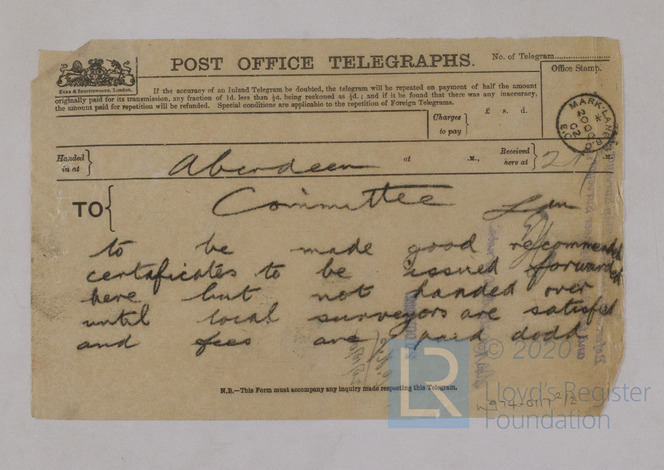 POST OFFICE TELEGRAPHS.
No. of Telegram
Office Stamp.
If the accuracy of an Inland Telegram be doubted, the telegram will be repeated on payment of half the amount
originally paid for its transmission, any fraction of 1d. less than ½d. being reckoned as ½d.; and if it be found that there was any inaccuracy,
the amount paid for repetition will be refunded. Special conditions are applicable to the repetition of Foreign Telegrams.
Eyre & Spottiswoode, London.
Charges to pay £ s. d.
MARK-LANE
Handed in at Aberdeen at .M., Received here at
TO Committee
to be made good recommended
certificates to be issued forwarded
here but not handed over
until local surveyors are satisfed
and fees are paid dodd
N.B.—This Form must accompany any inquiry made respecting this Telegram.
LR © 2020
Lloyd's Register
Foundation